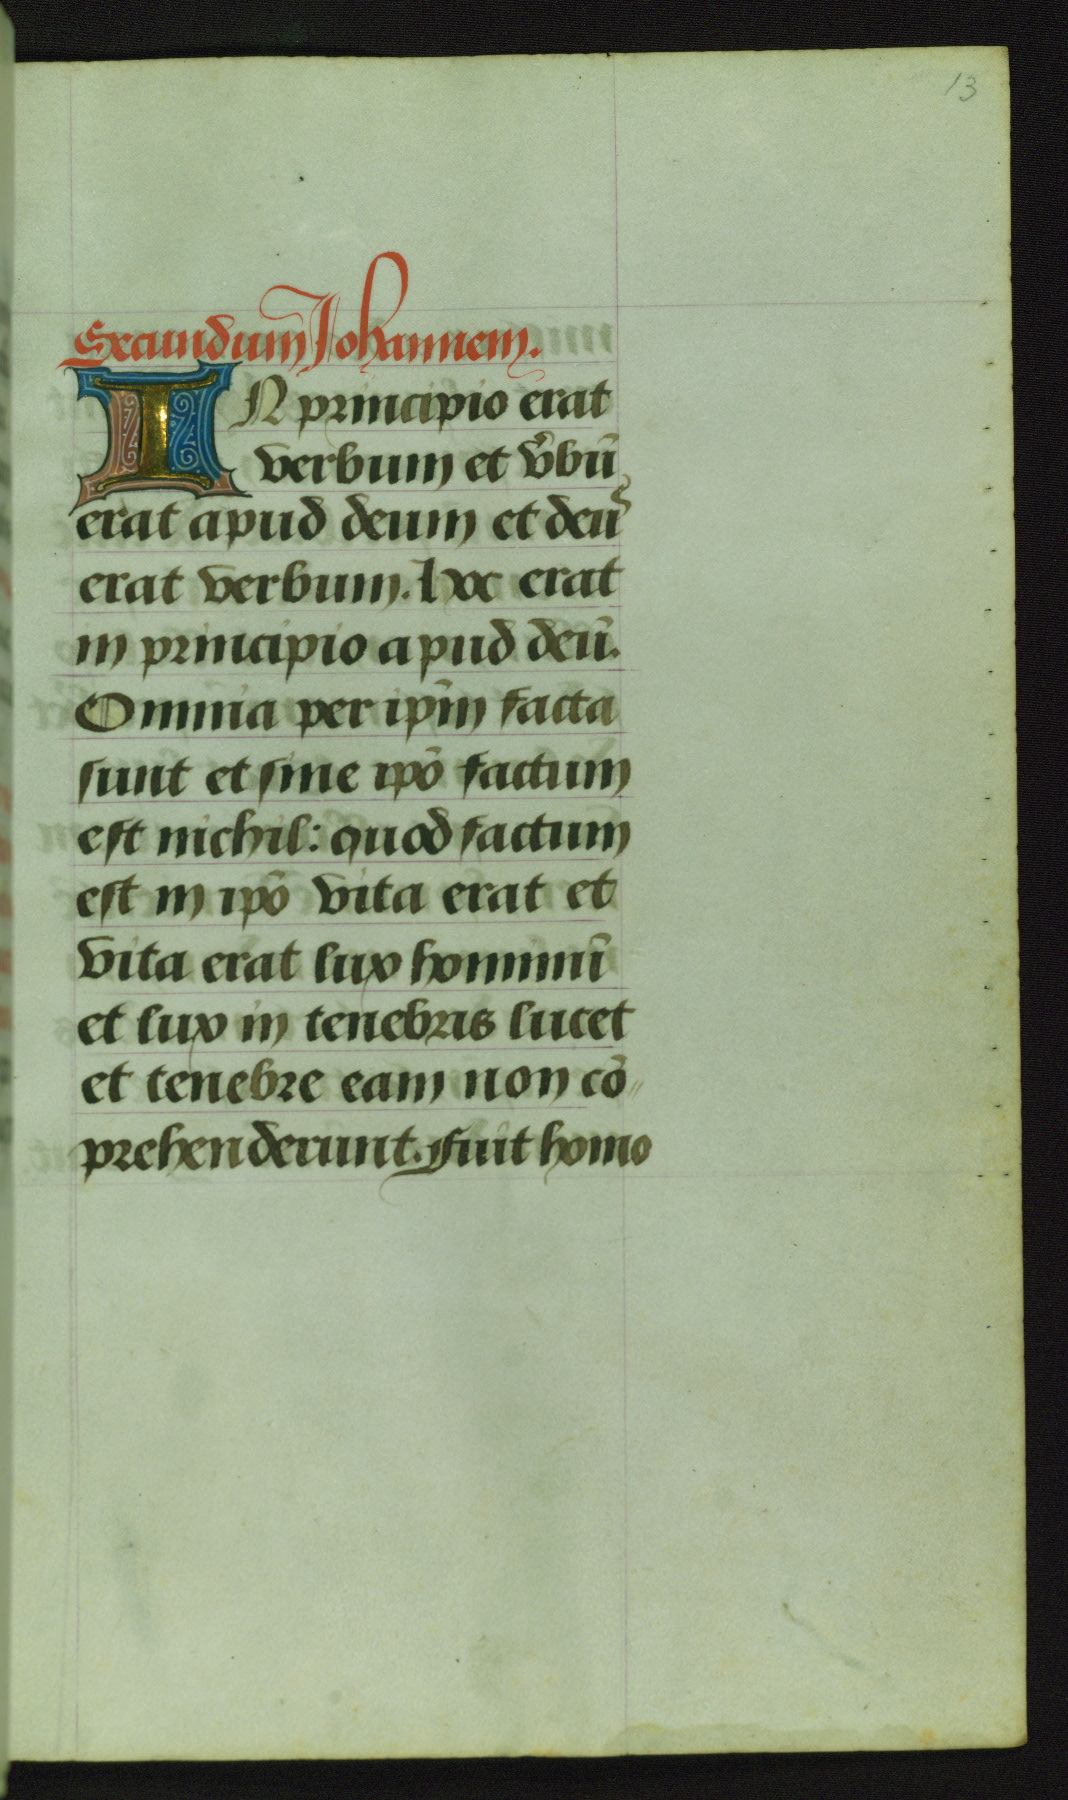 13
Secundum Johannem.
IN principio erat
verbum et v̾bū
erat apud deum et deuˢ
erat verbum. hoc erat
in principio apud deū.
Omnia per ip̄m facta
sunt et sine ip̄o factum
est nichil: quod factum
est in ip̄o vita erat et
vita erat lux hominū
et lux in tenebris lucet
et tenebre eam non cō
prehenderunt. fuit homo